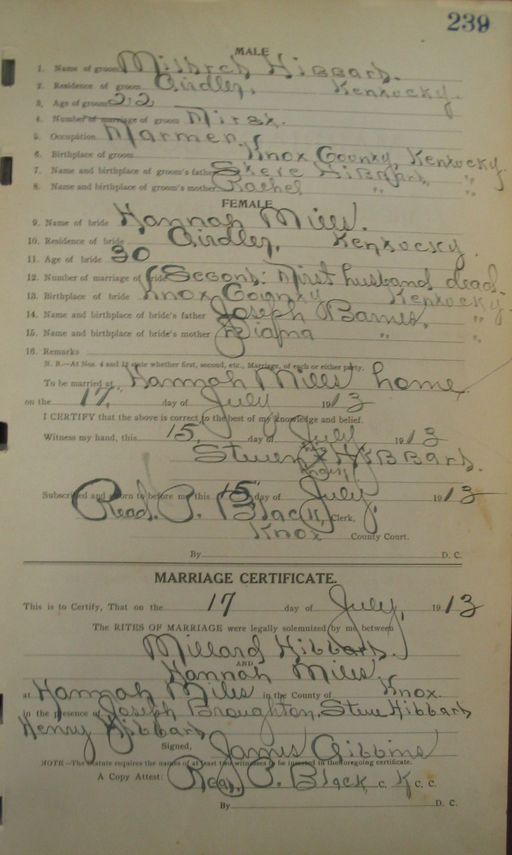 239
MALE
1. Name of groom Milbrey Hibbard.
2. Residence of groom Girdler, Kentucky.
3. Age of groom 22
4. Number of marriage of groom First.
5. Occupation Farmer.
6. Birthplace of groom Knox County, Kentucky.
7. Name and birthplace of groom's father Steve Hibbard, " "
8. Name and birthplace of groom's mother Rachel " "
FEMALE
9. Name of bride Hannah Mills.
10. Residence of bride Girdler, Kentucky.
11. Age of bride 30
12. Number of marriage of bride (Second: First husband dead.
13. Birthplace of bride Knox County Kentucky.
14. Name and birthplace of bride's father Joseph Barnes, "
15. Name and birthplace of bride's mother Diana " "
16. Remarks
N. B.—At Nos. 4 and 12 state whether first, second, etc., Marriage, of each or either party.
To be married at Hannah Mills home,
on the 17, day of July 1913
I CERTIFY that the above is correct to the best of my knowledge and belief.
Witness my hand, this 15, day of July 1913
Steven X Hibbard.
Subscribed and sworn to before me this 15 day of July, 1913
Read P. Black, Clerk,
Knox County Court.
By D. C.
MARRIAGE CERTIFICATE.
This is to Certify, That on the 17 day of July, 1913
The RITES OF MARRIAGE were legally solemnized by me between
Millard Hibbard.
AND
Hannah Mills
at Hannah Mills in the County of Knox.
in the presence of Joseph Broughton, Steve Hibbard
Henry Hibbard
Signed, James Gibbins
NOTE—The statute requires the names of at least two witnesses to be inserted in the foregoing certificate.
A Copy Attest: Read P. Black, C. K C. C.
By D. C.